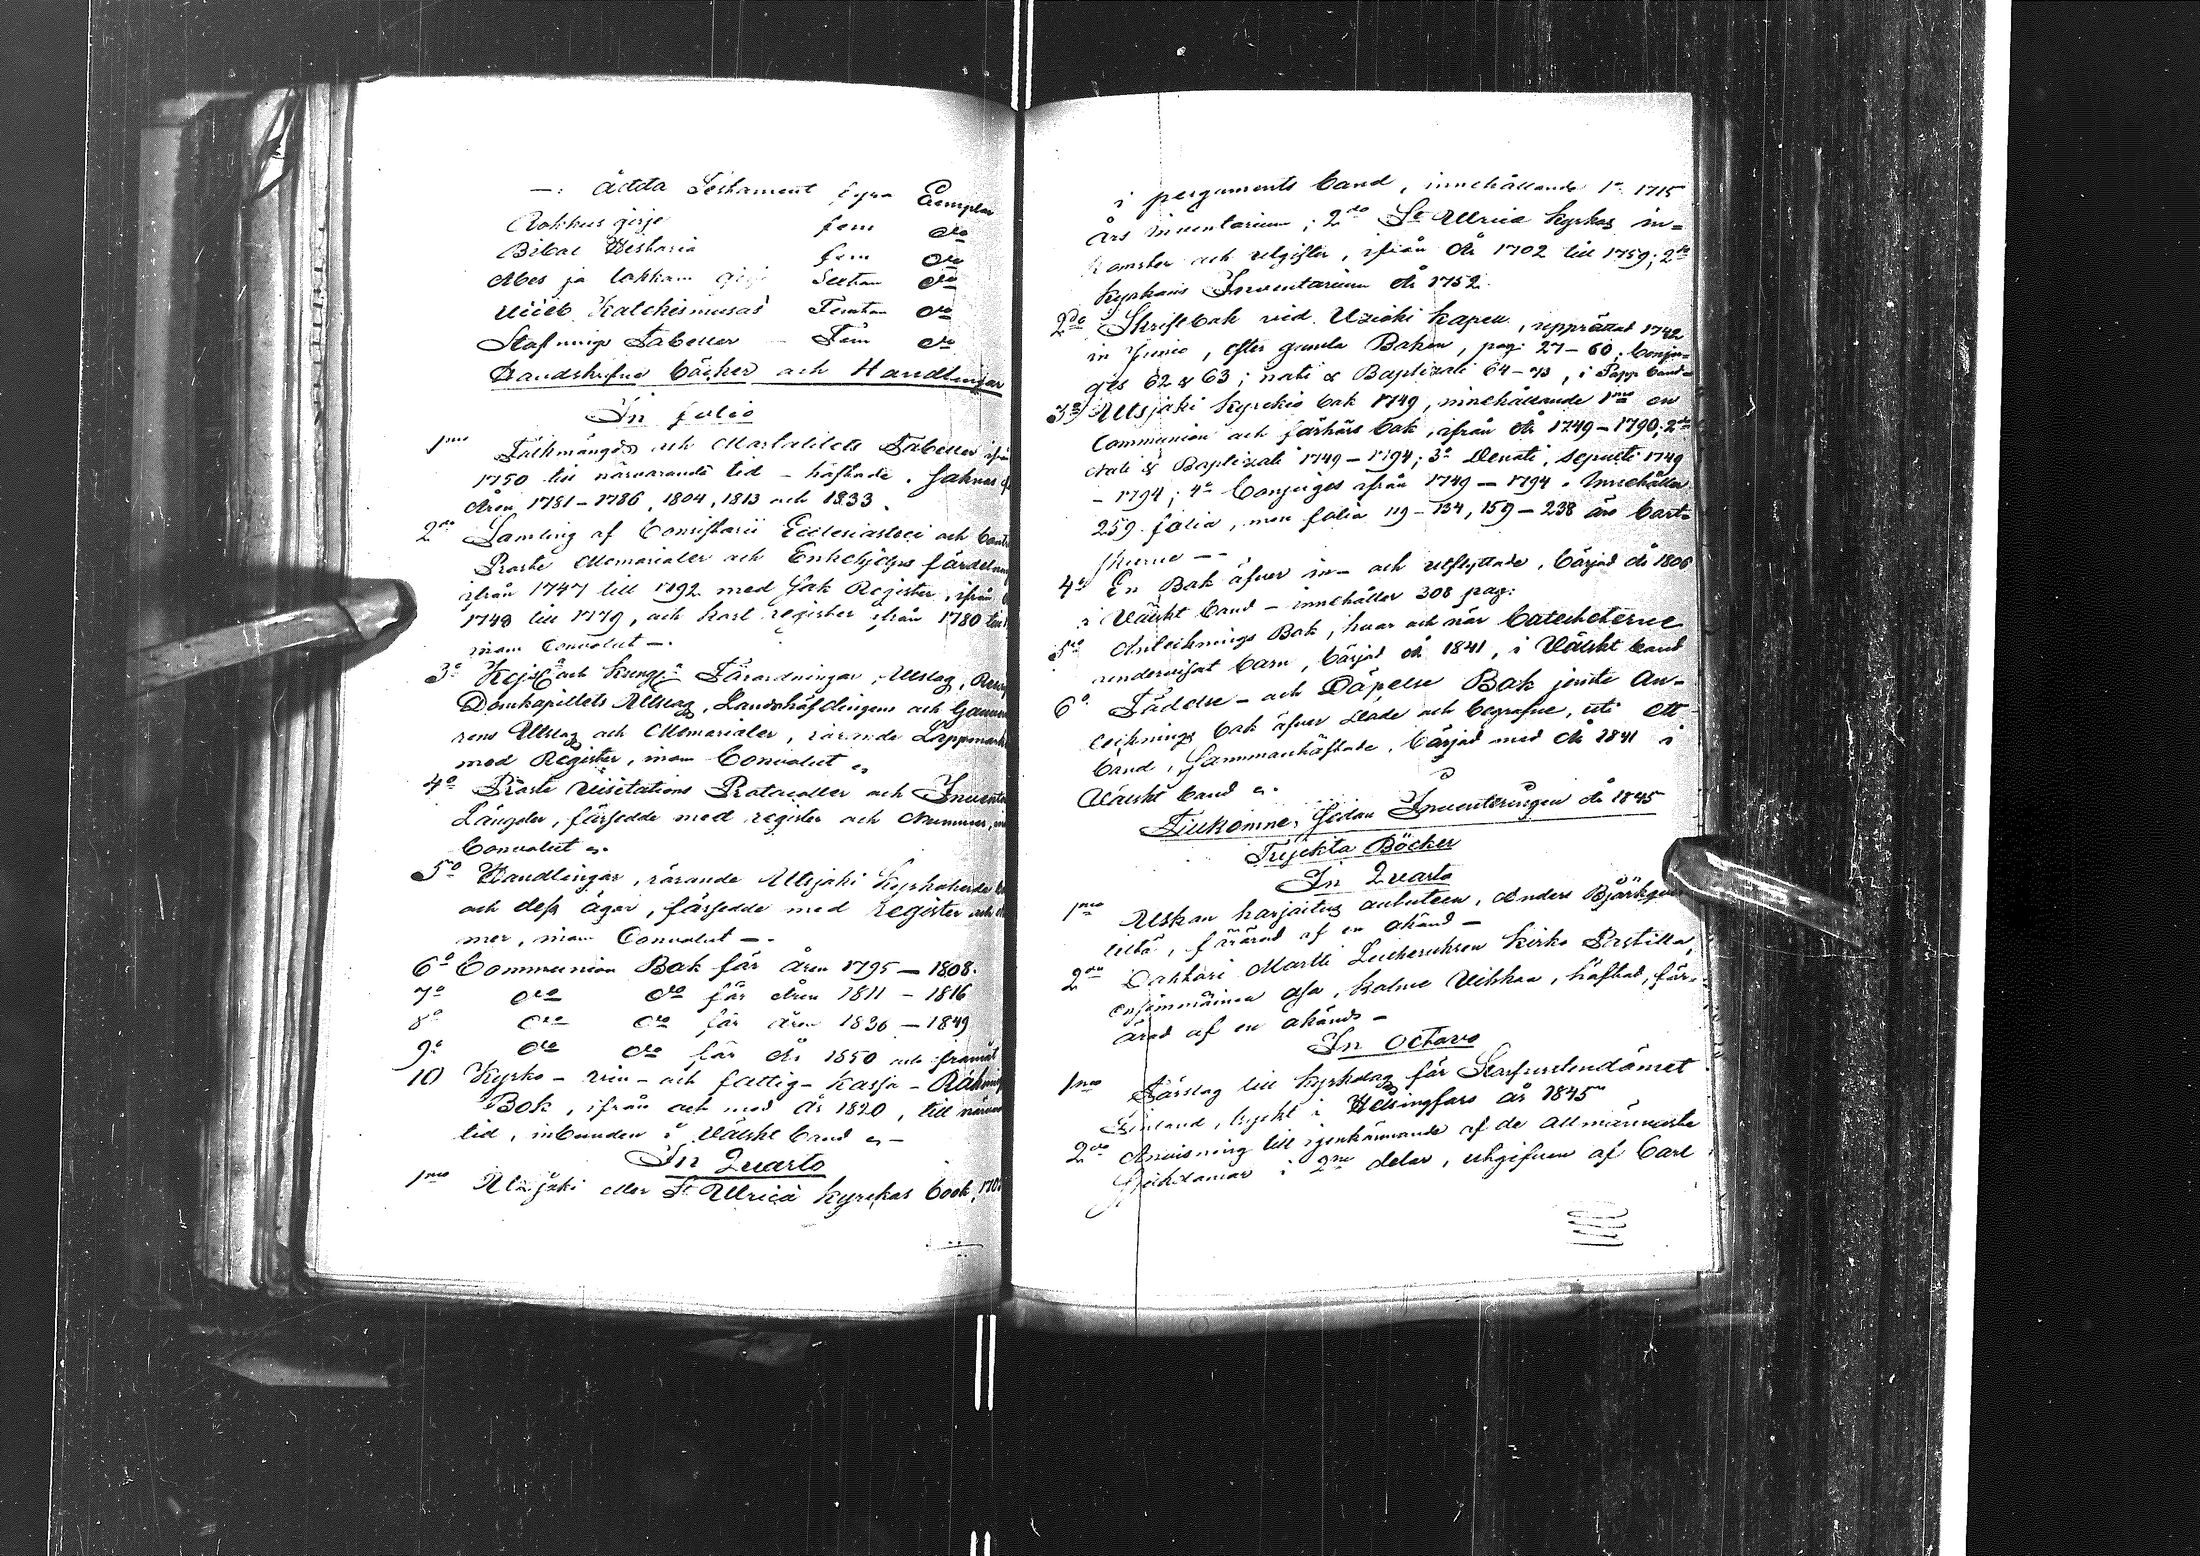 —: Ådda Testament fyra Exemplar
Rokkus girje fem dro
Bibal Historia fem dro
Abes ja lokkam girj Sextan dro
Ucceb Katekismusas Femton dro
Stafnings Tabeller — Fem dro
Handskrifne böcker och Handlingar
In folio
1mo Folkmängds och Mortalitets Tabeller ifrån
1750 till närvarande tid – häftade. Saknas för
Åren 1781–1786, 1804, 1813 och 1833.
2do Samling af Consistorii Ecclesiastici och Contr
Prosts Memorialer och Enkehjelps fördelning
ifrån 1747 till 1792 med Sak Register, ifrån
1749 till 1779, och kort register ifrån 1780 till
inom Convolut —.
3o Kejs: och Kungl: Förordningar, Utslag,
Domkapitlets Utslag, Landshöfdingens och Gouver
rens Utslag och Memorialer, rörande Lappmark
med Register, inom Convolut
4o Prosts Visitations Protocoller och Invent
Längder, försedde med register och Nummer,
Convolut
5o Handlingar, rörande Utsjoki Kyrkoherde
och dess ägor, försedde med register och
mer, inom Convolut —.
6o Communion Bok för åren 1795 — 1808.
7o dro dro för åren 1811 – 1816
8o dro dro för åren 1836 — 1849
9o dro dro för År 1850 och framåt
10) Kyrko- vin- och fattig- kassa- Räknings
Bok, ifrån och med år 1820, till närvar
tid, inbunden i Wälskt band
In Quarto
1mo Utsjoki eller St Ulricæ kyrckas book, 170
i pergaments band, innehållande 1o 1715
års inventarium; 2do St Ulricæ kyrkas in=
komster och utgifter, ifrån År 1702 till 1759; 2do
kyrkans Inventarium År 1752.
2do Skriftbok vid Uzioki kapell, upprättad 1742
in Junio, efter gamla Boken, pag: 27–60, Conju=
ges 62 & 63; nati & Baptizati 64–73, i Papp band
3o Utsjoki kyrckio bok 1749, innehållande 1mo en
Communion och förhörs bok, ifrån År 1749–1790; 2do
Nati & Baptizati 1749–1794; 3o Denati, Sepulti 1749
– 1794; 4o Conjuges ifrån 1749 — 1794. Innehåller
259 folia, men folia 119–134, 159–238 äro bort=
skurne —.
4o En Bok öfver in- och utflyttade, börjad År 1806
i Wälskt band – innehåller 308 pag:
5o Antecknings Bok, huar och när Catecheterne
undervisat barn, börjad År 1841, i Wälskt band
6o Födelse- och Döpelse Bok jemte An=
tecknings bok öfver Döde och begrafne, uti ett
band, Sammanhäftade, börjad med År 1841 i
Wälskt band
Tillkomne, sedan Inventeringen År 1845
Tryckta Böcker
In Quarto
1mo Uskon harjoitus autuuteen, Anders Björkqvi
lilta, förärad af en okänd —
2do Dohtori Martti Lutheruksen kirko Postilla,
ensimmäinen Osa, kolme Vihkoa, häftad, för=
ärad af en okänd —
In Octavo
1mo Förslag till kyrkolag för Storfurstendömet
Finland, tryckt i Helsingfors år 1845
2do Anvisning till igenkännande af de allmännaste
Sjukdomar i 2ne delar, utgifven af Carl